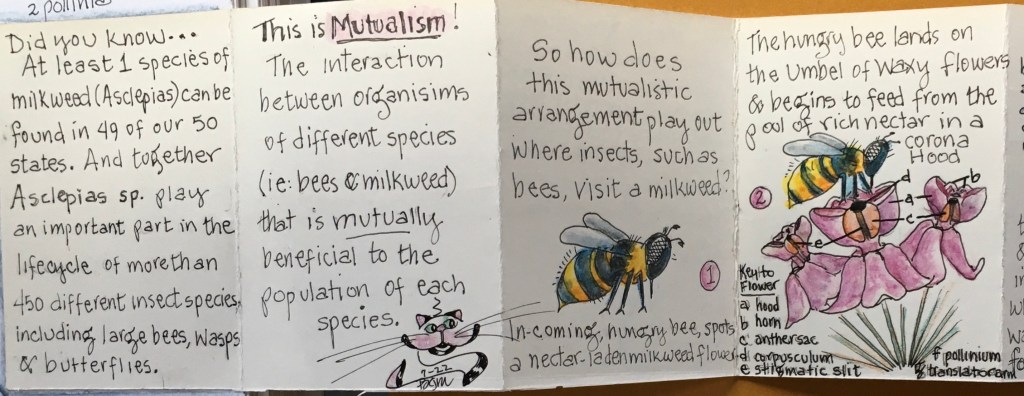 2 pollinia
Did you know...
At least 1 species of
milkweed (Asclepias) can be
found in 49 of our 50
states. And together
Asclepias sp. play
an important part in the
lifecycle of more than
450 different insect species,
including large bees, wasps
& butterflies.
This is Mutualism!
The interaction
between organisims
of different species
(ie: bees & milkweed)
that is mutually
beneficial to the
population of each
species.
9-22
So how does
this mutualistic
arrangement play out
where insects, such as
bees, visit a milkweed?
1
In-coming, hungry bee, spots
a nectar-laden milkweed flower
The hungry bee lands on
the Umbel of waxy flowers
& begins to feed from the
pool of rich nectar in a
corona
Hood
2
d
b
a
c
e
Key to
Flower
a hood
b horn
c anther sac
d corpusculum
e stigmatic slit
f pollinium
g translator arm